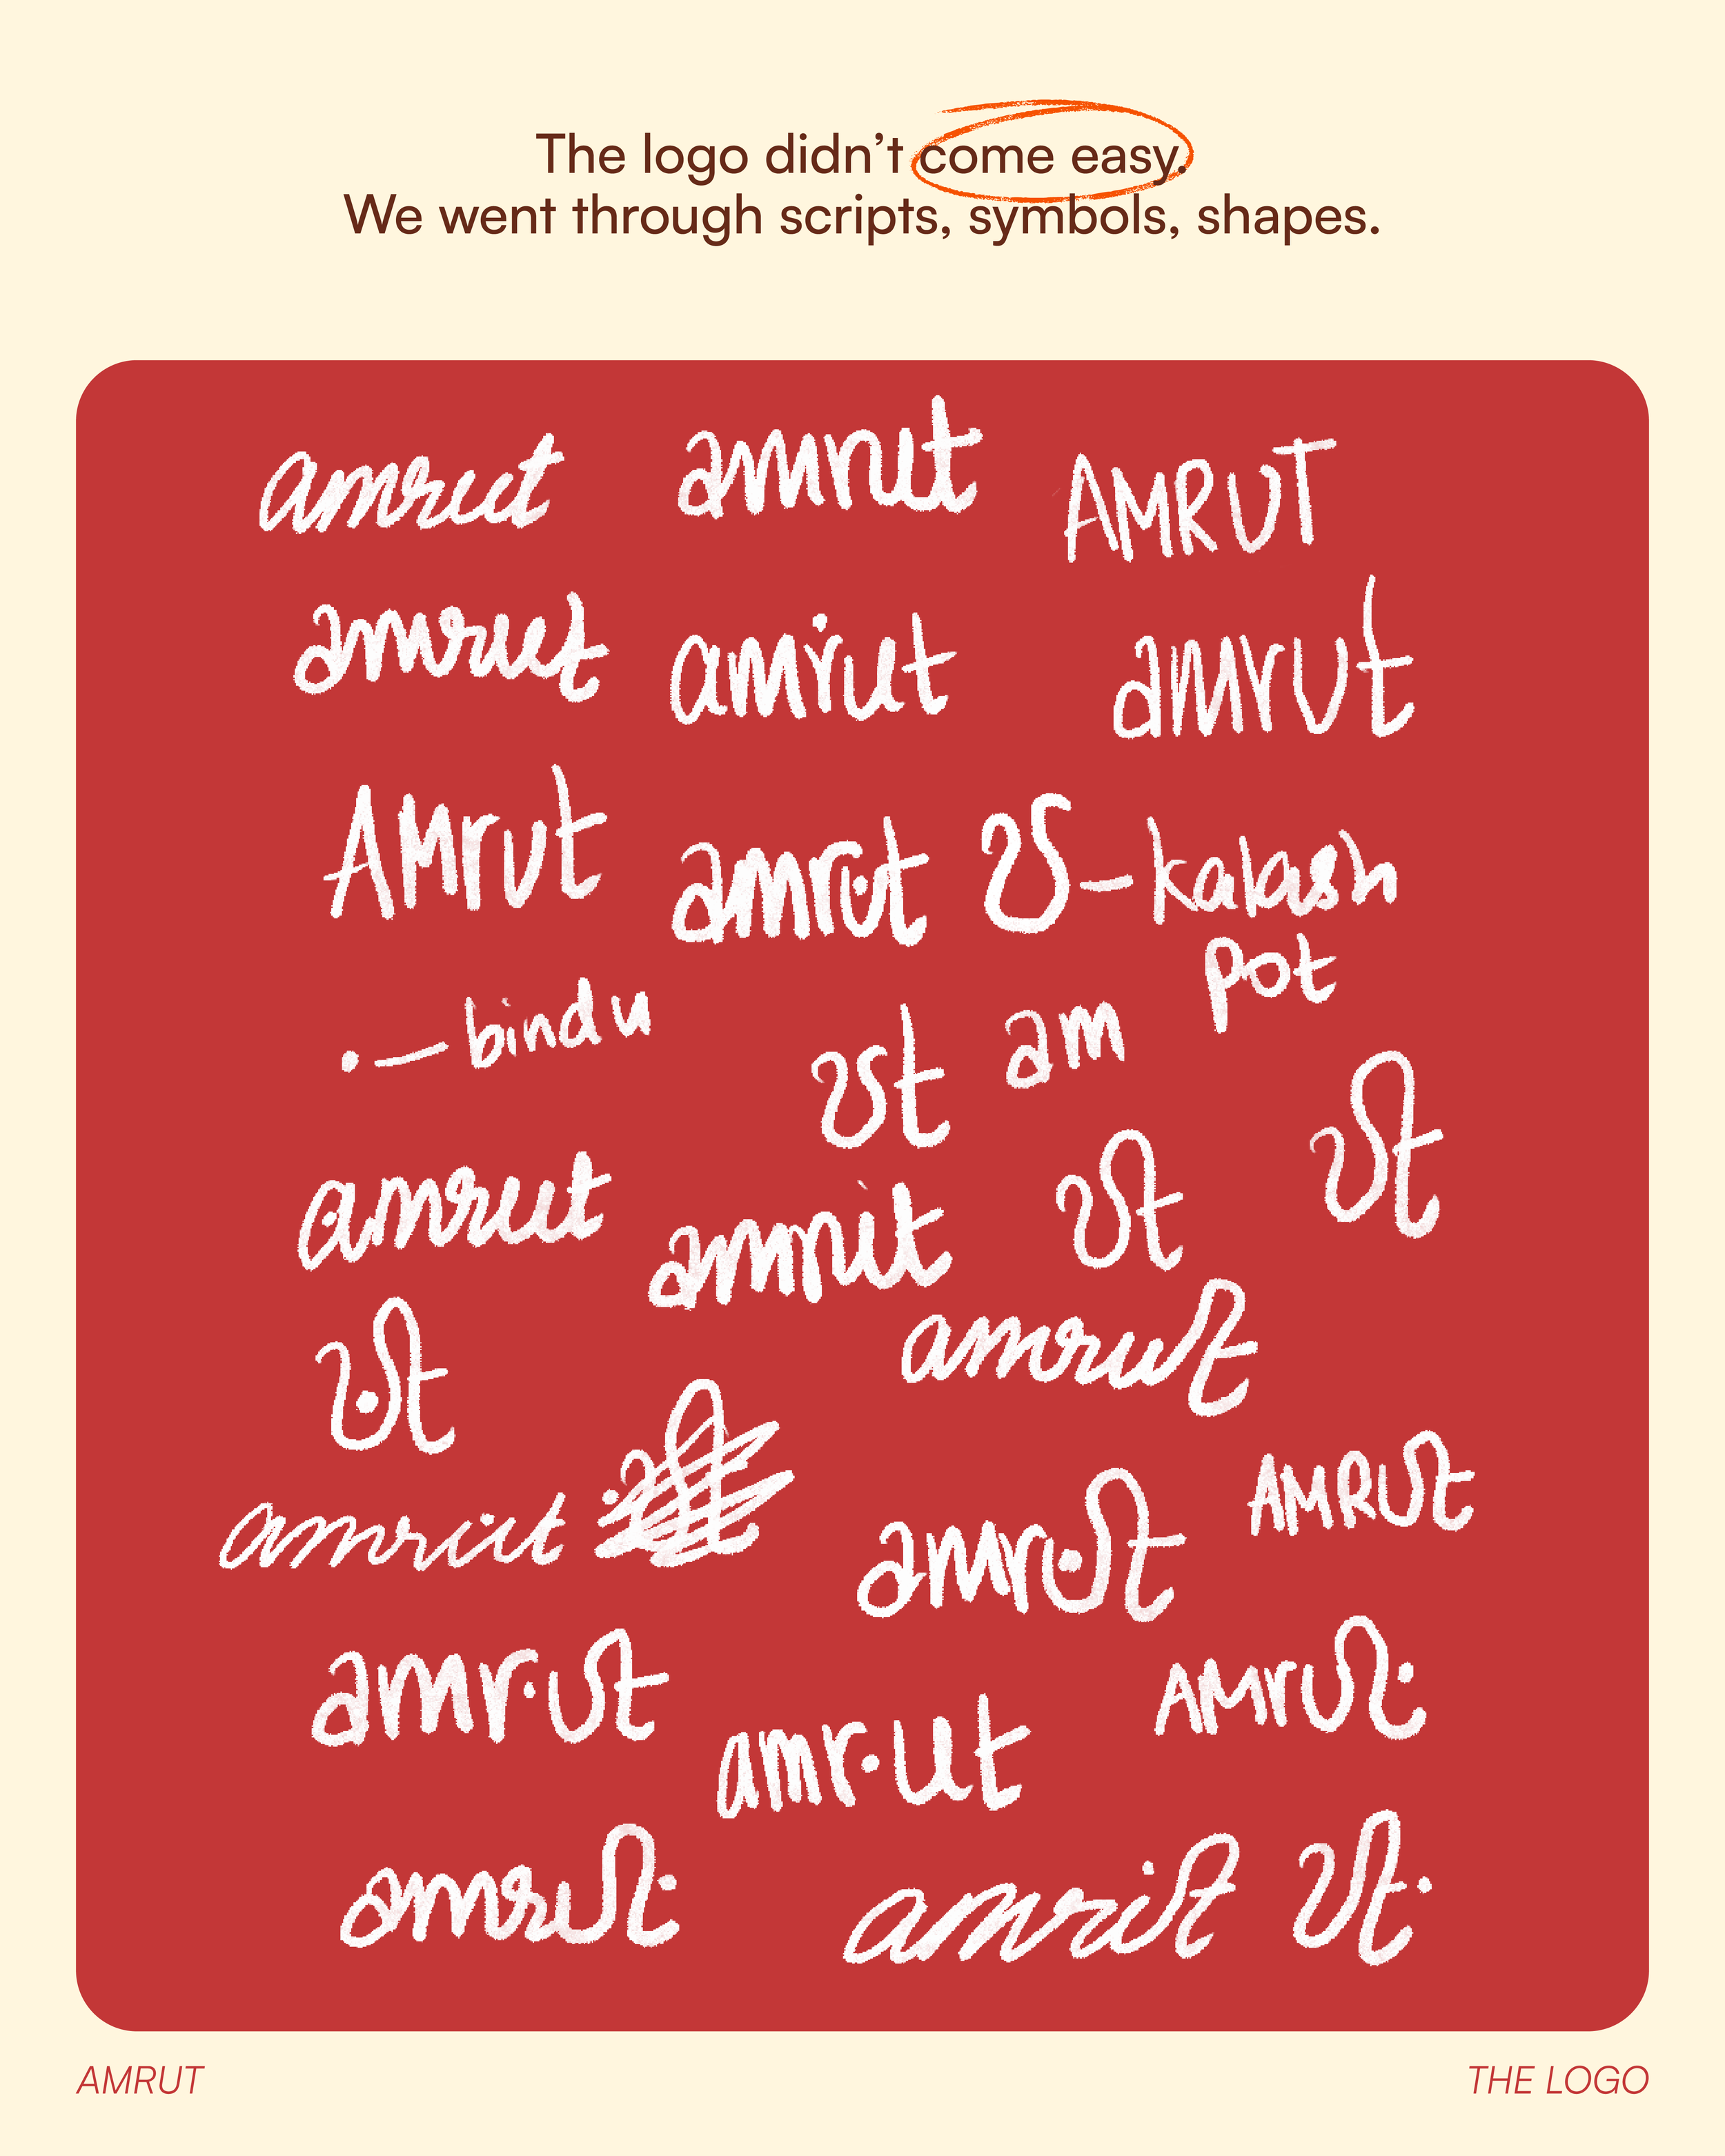 The logo didn’t come easy.
We went through scripts, symbols, shapes.
amrut amrut AMRUT
amrut amrut amrut
AMrut amrut – kalash
pot
• – bindu
ut am
ut
amrut amrut ut
ut amrut
amrut amrut AMRUt
amr·ut AMrut·
amr·ut
amrut· amrut ut·
AMRUT THE LOGO